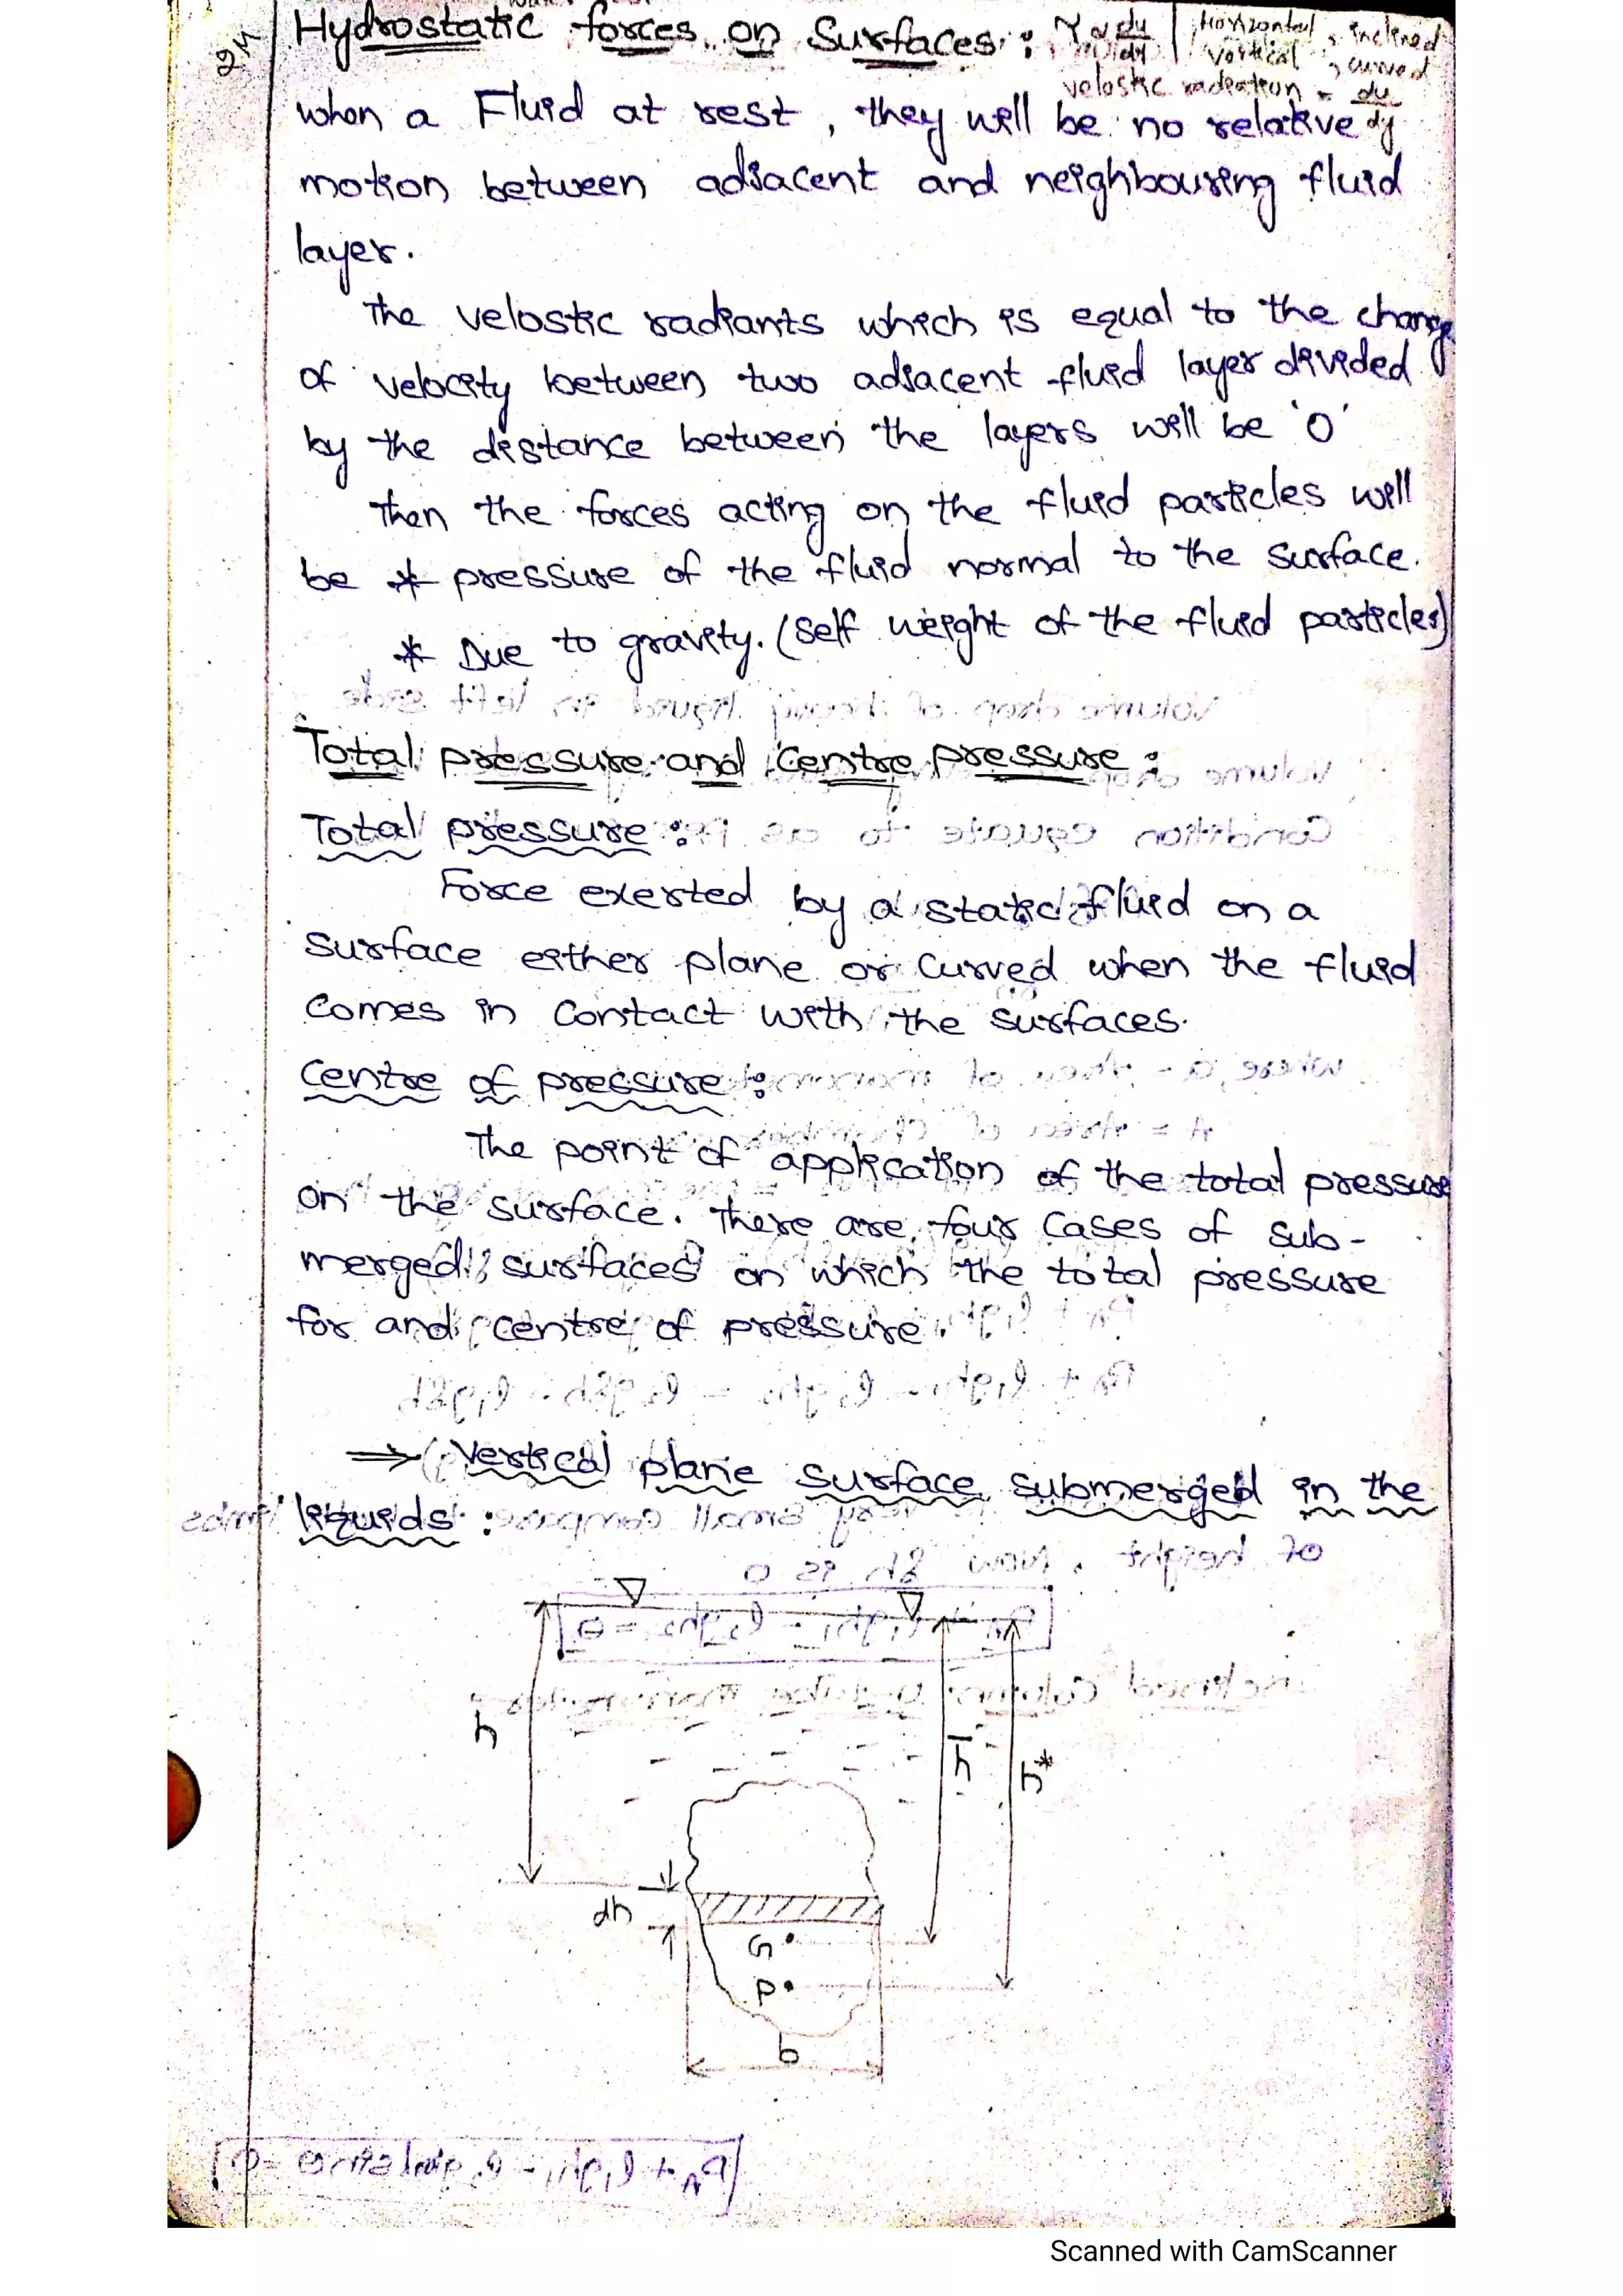 2M
Hydrostatic forces on Surfaces : τ α du/dy | Horizontal, inclined
Vertical, curved
velostic radiation = du/dy
when a Fluid at rest, they will be no relative
motion between adjacent and neighbouring fluid
layer.
The velostic radiants which is equal to the change
of velocity between two adjacent fluid layer divided
by the distance between the layers will be '0'
Then the forces acting on the fluid particles will
be * pressure of the fluid normal to the surface.
* Due to gravity. (Self weight of the fluid particles)
Total pressure and Centre pressure :
Total pressure :
Force exerted by a static fluid on a
surface either plane or Curved when the fluid
Comes in Contact with the surfaces.
Centre of pressure :
The point of application of the total pressure
on the surface. There are four Cases of Sub-
merged surfaces on which the total pressure
for and centre of pressure.
⇒ Vertical plane surface submerged in the
liquids :
h
h̄
h*
dh
G
P
b
Scanned with CamScanner